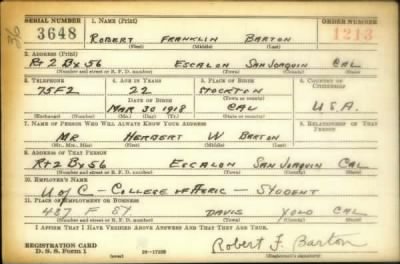 36
SERIAL NUMBER 1. NAME (Print) ORDER NUMBER
3648 ROBERT FRANKLIN BARTON 1213
(First) (Middle) (Last)
2. ADDRESS (Print)
Rt 2 Bx 56 ESCALON SAN JOAQUIN CAL
(Number and street or R. F. D. number) (Town) (County) (State)
3. TELEPHONE 4. AGE IN YEARS 5. PLACE OF BIRTH 6. COUNTRY OF CITIZENSHIP
75F2 22 STOCKTON
DATE OF BIRTH (Town or county)
MAR 30 1918 CAL U.S.A.
(Exchange) (Number) (Mo.) (Day) (Yr.) (State or country)
7. NAME OF PERSON WHO WILL ALWAYS KNOW YOUR ADDRESS 8. RELATIONSHIP OF THAT PERSON
MR HERBERT W BARTON
(Mr., Mrs., Miss) (First) (Middle) (Last)
9. ADDRESS OF THAT PERSON
Rt 2 Bx 56 ESCALON SAN JOAQUIN CAL
(Number and street or R. F. D. number) (Town) (County) (State)
10. EMPLOYER'S NAME
U of C - COLLEGE of AGRIC - STUDENT
11. PLACE OF EMPLOYMENT OR BUSINESS
437 F ST DAVIS YOLO CAL
(Number and street or R. F. D. number) (Town) (County) (State)
I AFFIRM THAT I HAVE VERIFIED ABOVE ANSWERS AND THAT THEY ARE TRUE.
REGISTRATION CARD
D. S. S. Form 1 Robert F. Barton
(Registrant's signature)